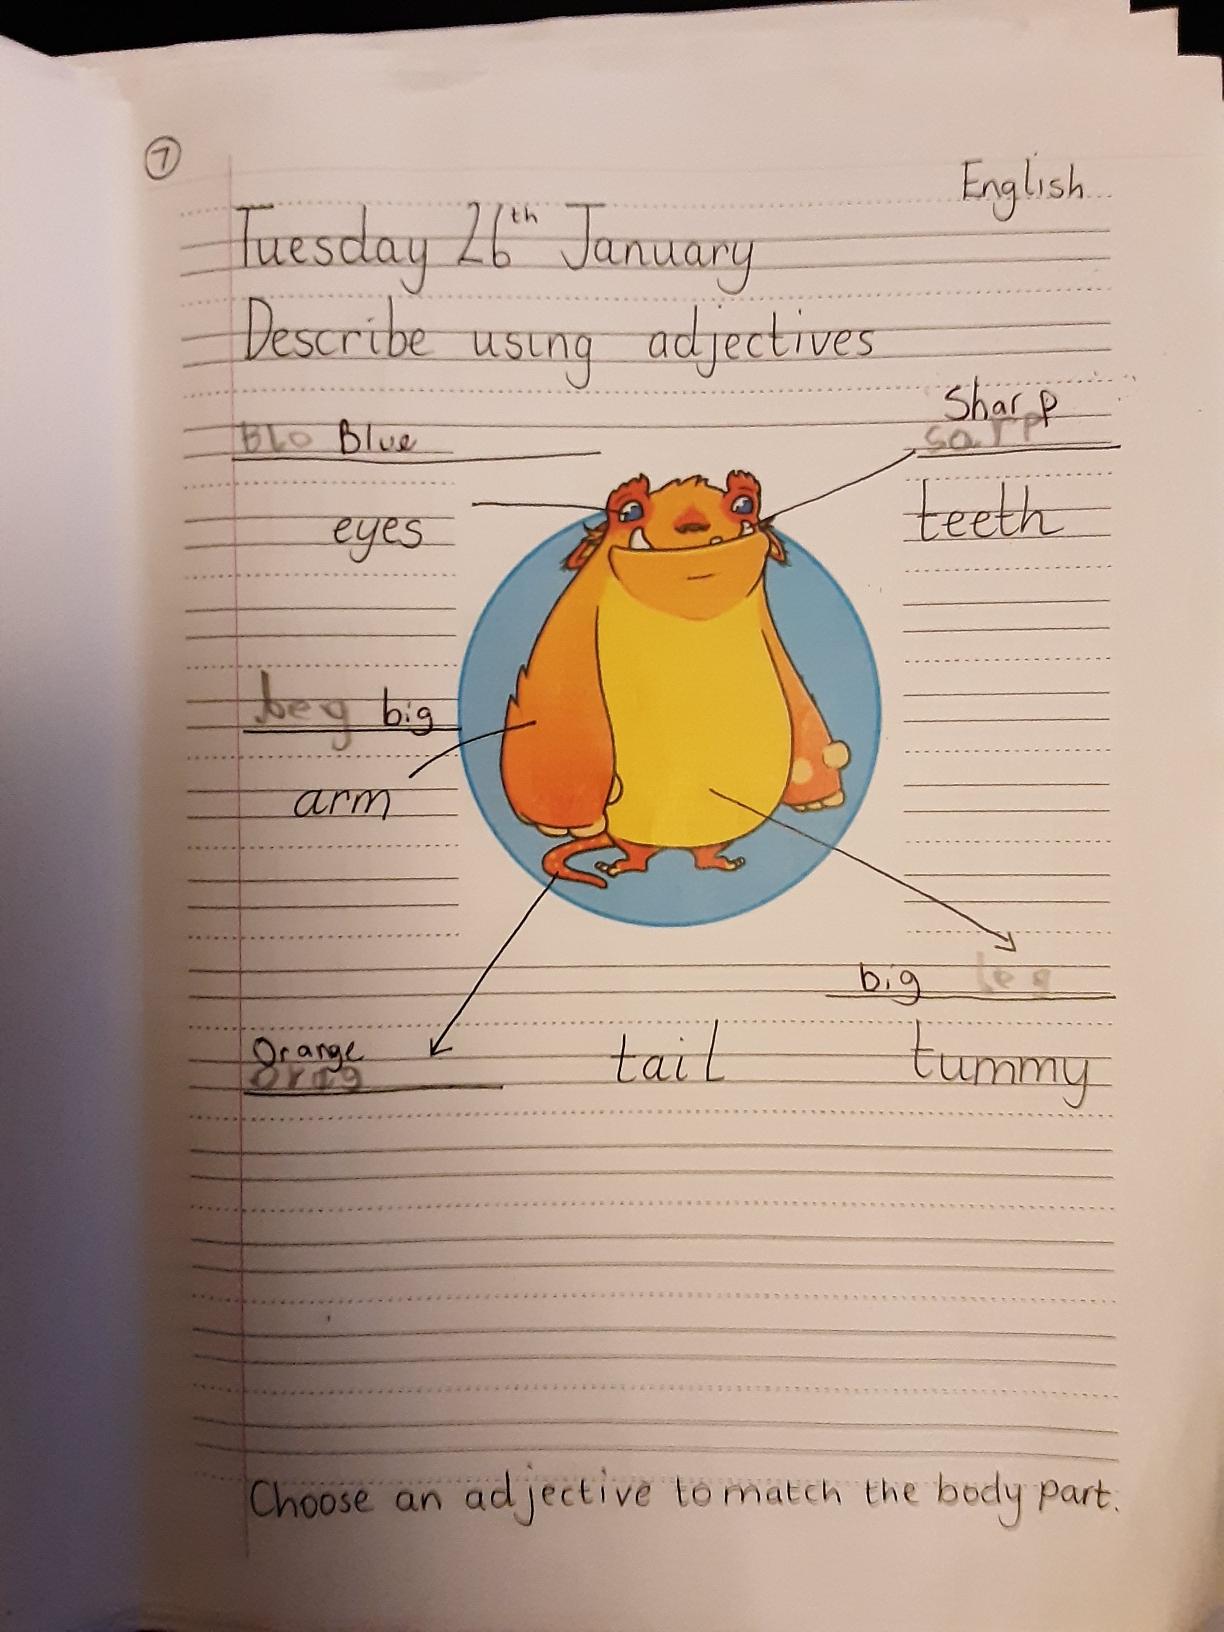 7
English
Tuesday 26th January
Describe using adjectives
Blo Blue
Sharp
sarp
eyes
teeth
beg big
arm
big
Orange
tail
tummy
Choose an adjective to match the body part.